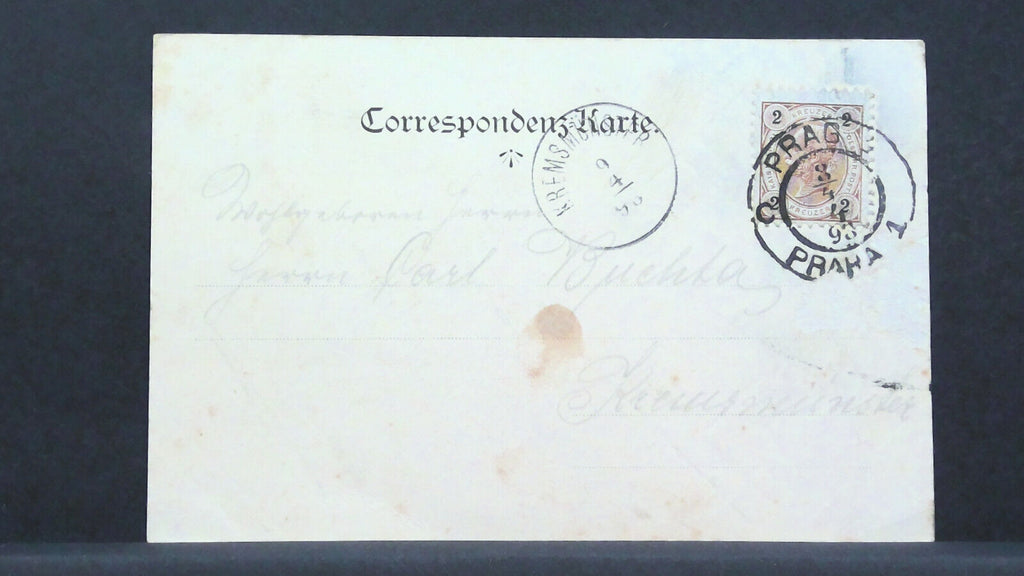 Correspondenz-Karte.
KREMSMÜNSTER
9
4/
93
2 KREUZER 2
2 KREUZER 2
PRAG
3
4
93
C PRAHA 1
Wohlgeboren Herrn
Herrn Carl
Kremsmünster